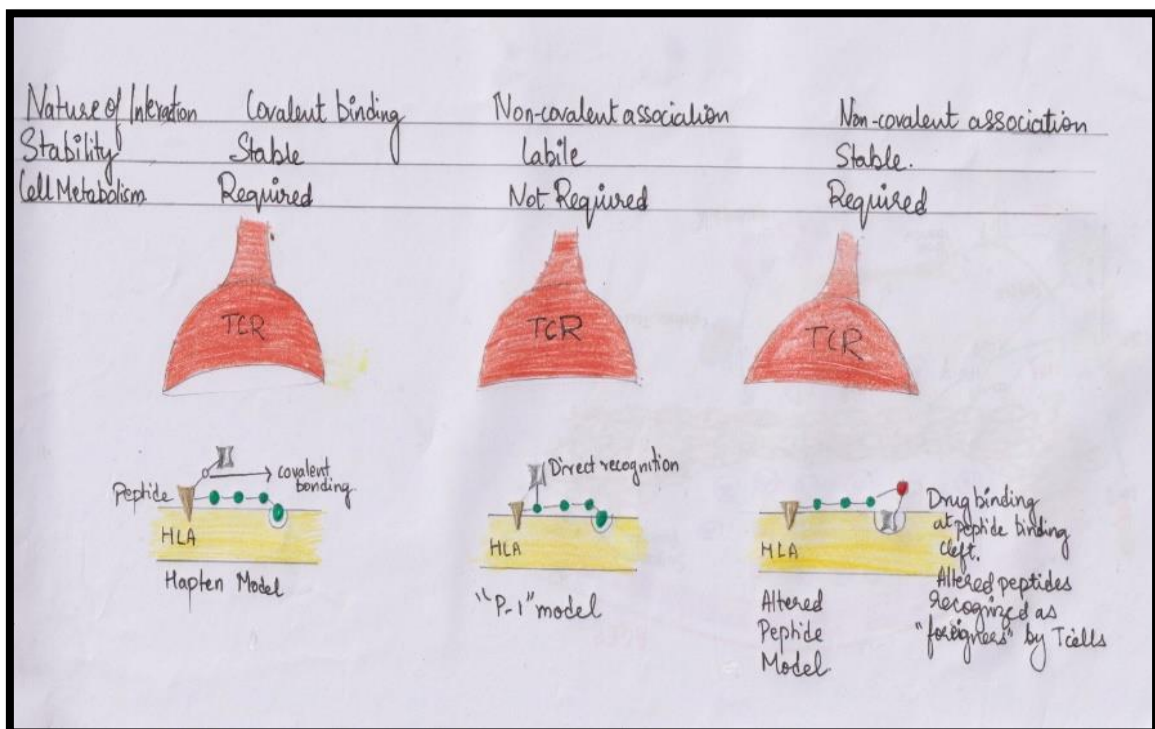 Nature of Interation Covalent binding Non-covalent association Non-covalent association
Stability Stable Labile Stable.
Cell Metabolism Required Not Required Required
TCR TCR TCR
Peptide covalent bonding
HLA
Hapten Model
Direct recognition
HLA
"P-1" model
HLA
Altered
Peptide
Model
Drug binding
at peptide binding
cleft.
Altered peptides
recognized as
by Tcells